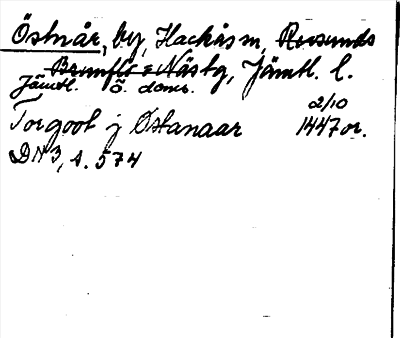 Östnår, by, Hackås sn, Revsunds
Brunflo o Näs tg, Jämtl. l.
Jämtl. ö. doms.
Torgoot j Østanaar 2/10 1447 or.
DN 3, s. 574